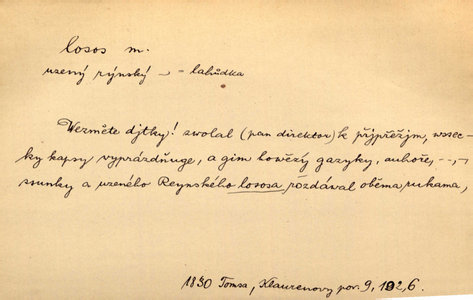 losos m.
uzený rýnský ~ - lahůdka
Wezměte djtky! zwolal (pan direktor) k přjpřežjm, wssec-
ky kapsy vyprázdňuge, a gim howězy gazyky, auhoře, -,-
ssunky a uzeného Reynského lososa rozdával oběma rukama,
1840 Tomsa, Klaurenovy pov. 9, 192, 6.